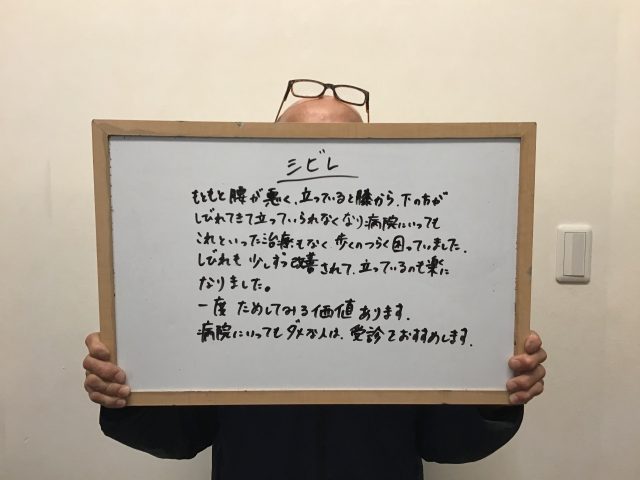 シビレ
もともと腰が悪く、立っていると膝から、下の方が
しびれてきて立っていられなくなり病院にいっても
これといった治療もなく歩くのつらく困っていました。
しびれも少しずつ改善されて、立っているのも楽に
なりました。
一度ためしてみる価値あります。
病院にいってもダメな人は、受診をおすすめします。